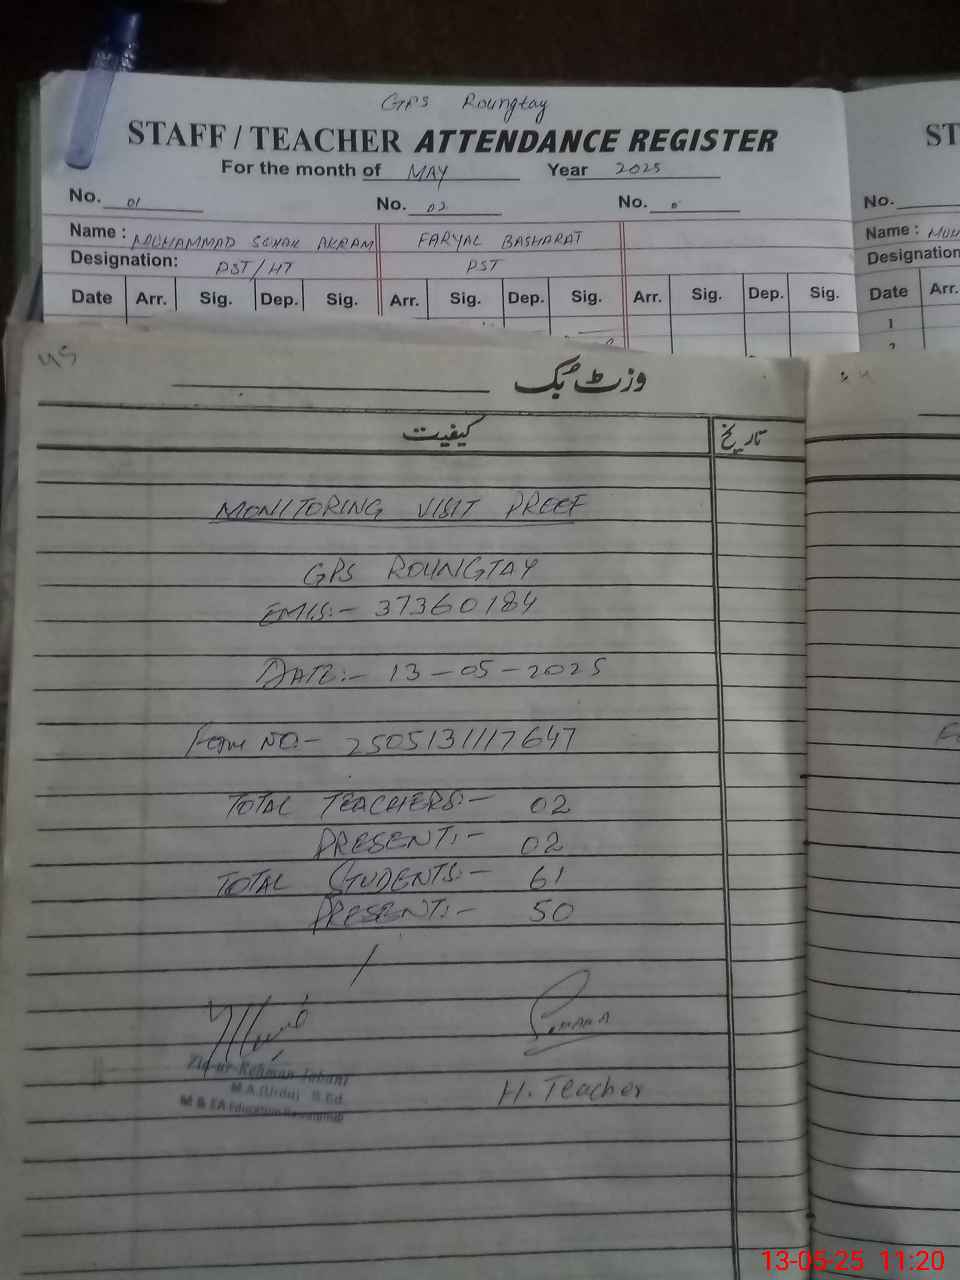 GPS Roungtay
STAFF / TEACHER ATTENDANCE REGISTER
For the month of MAY Year 2025
No. 01 No. 02 No.
Name : MUHAMMAD SOHAIL AKRAM FARYAL BASHARAT
Designation: PST/HT PST
Date Arr. Sig. Dep. Sig. Arr. Sig. Dep. Sig. Arr. Sig. Dep. Sig.
ST
No.
Name : MUH
Designation
Date Arr.
1
2
وزٹ بُک
کیفیت تاریخ
MONITORING VISIT PROOF
GPS ROUNGTAY
EMIS:- 37360184
DATE:- 13-05-2025
Form NO:- 2505131117647
TOTAL TEACHERS:- 02
PRESENT:- 02
TOTAL STUDENTS:- 61
PRESENT:- 50
Zia-ur-Rehman
M.A (Urdu) B.Ed
M & EA Education
H. Teacher
13-05-25 11:20